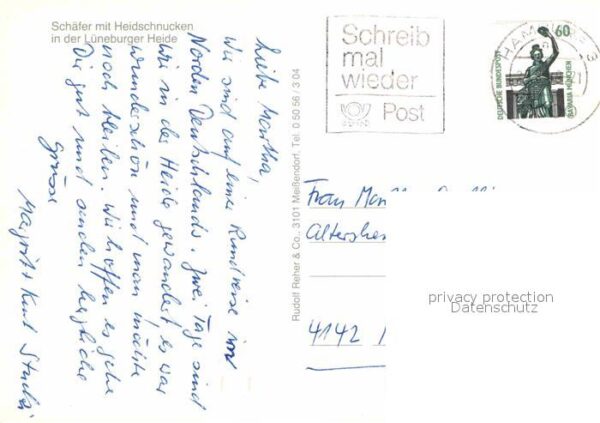 Schäfer mit Heidschnucken
in der Lüneburger Heide
Liebe Martha,
Wir sind auf einer Rundreise im
Norden Deutschlands. Zwei Tage sind
wir in der Heide gewandert, es war
wunderschön und man möchte
noch bleiben. Wir hoffen es gehe
Dir gut und senden herzliche
Grüsse
Margrit + Kurt Studer
Rudolf Reher & Co., 3101 Meißendorf, Tel. 0 50 56 / 3 04
Schreib
mal
wieder
Post
HAMBURG
21
60
DEUTSCHE BUNDESPOST
BAVARIA MÜNCHEN
Frau
4142
privacy protection
Datenschutz